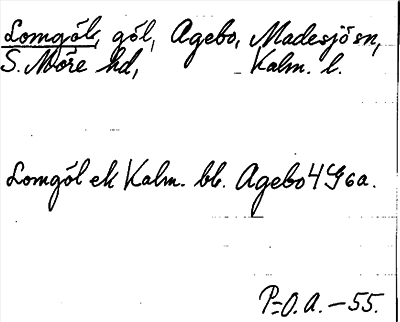 Lomgöl, göl, Agebo, Madesjö sn,
S. Möre hd, Kalm. l.
Lomgöl ek Kalm. bl. Agebo 4 G6a.
P=O.A. - 55.